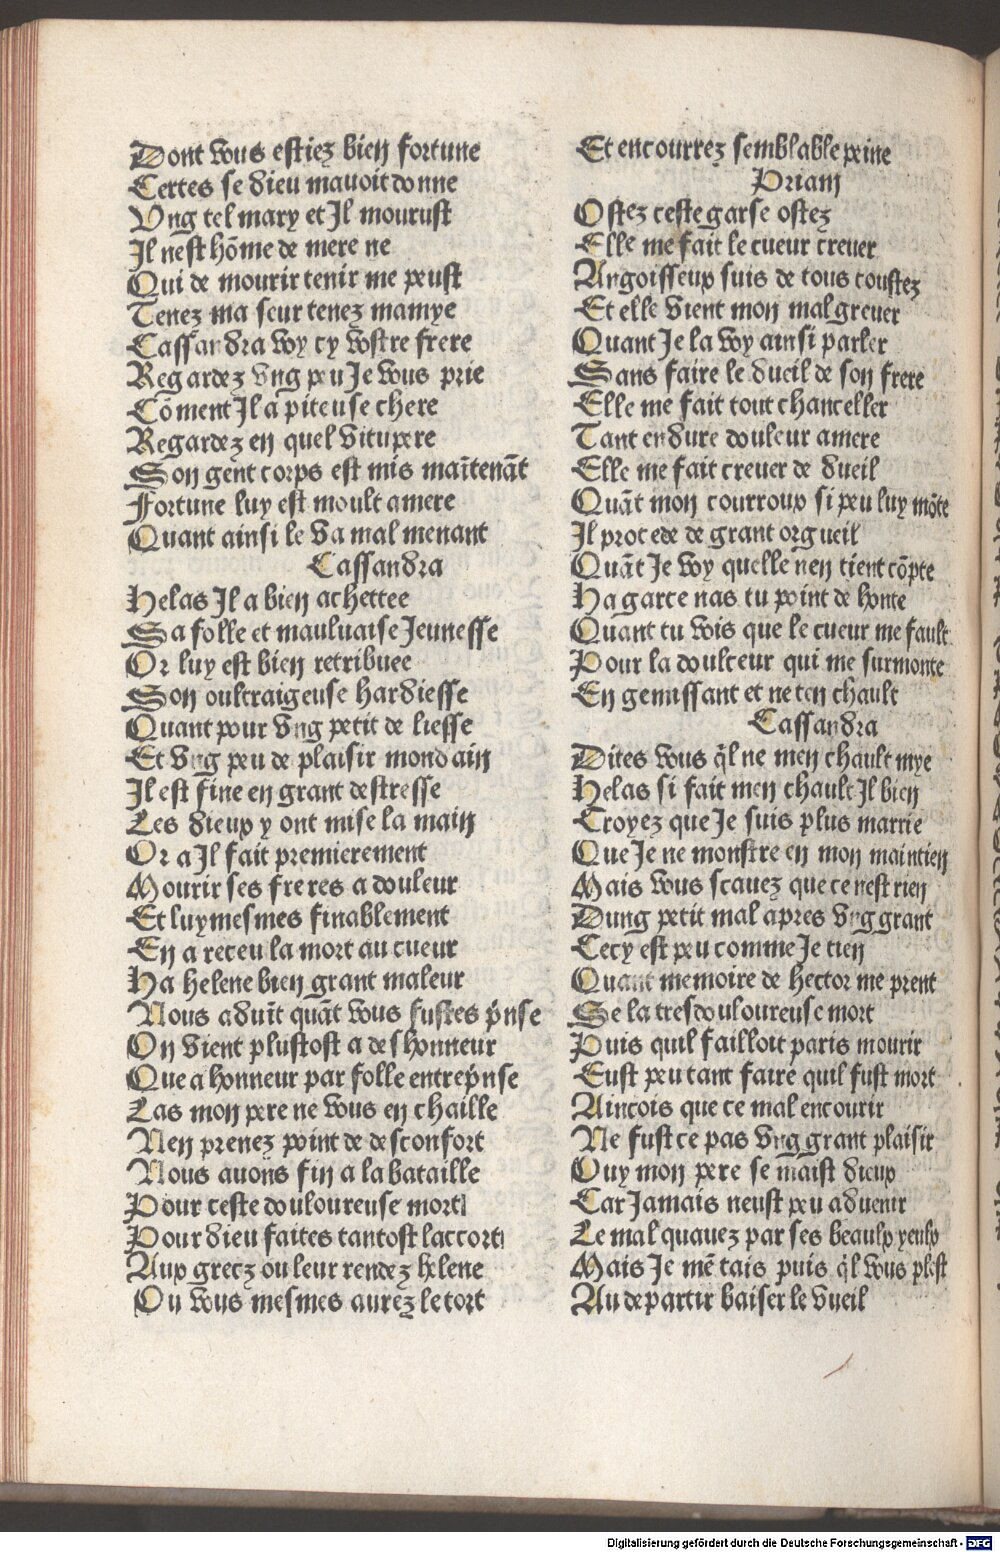 Dont vous estiez bien fortune
Certes se dieu mauoit donne
Vng tel mary et Jl mourust
Jl nest hõme de mere ne
Qui de mourir tenir me peust
Tenez ma seur tenez mamye
Cassandra voy cy vostre frere
Regardez vng peu Je vous prie
Cõment Jl a piteuse chere
Regardez en quel vitupere
Son gent corps est mis maĩtenãt
Fortune luy est moult amere
Quant ainsi le va mal menant
Cassandra
Helas Jl a bien achettee
Sa folle et mauluaise Jeunesse
Or luy est bien retribuee
Son oultraigeuse hardiesse
Quant pour vng petit de liesse
Et vng peu de plaisir mondain
Jl est fine en grant destresse
Les dieux y ont mise la main
Or a Jl fait premierement
Mourir ses freres a douleur
Et luymesmes finablement
En a receu la mort au cueur
Ha helene bien grant maleur
Nous aduĩt quãt vous fustes p̃nse
On vient plustost a deshonneur
Que a honneur par folle entrep̃nse
Las mon pere ne vous en chaille
Nen prenez point de desconfort
Nous auons fin a la bataille
Pour ceste douloureuse mort
Pour dieu faites tantost laccort
Aux grecz ou leur rendez helene
Ou vous mesmes aurez le tort
Et encourrez semblable peine
Priam
Ostez ceste garse ostez
Elle me fait le cueur creuer
Angoisseux suis de tous coustez
Et elle vient mon mal greuer
Quant Je la voy ainsi parler
Sans faire le dueil de son frere
Elle me fait tout chanceller
Tant endure douleur amere
Elle me fait creuer de dueil
Quãt mon courroux si peu luy mõte
Jl procede de grant orgueil
Quãt Je voy quelle nen tient cõpte
Ha garce nas tu point de honte
Quant tu vois que le cueur me fault
Pour la doulceur qui me surmonte
En gemissant et ne ten chault
Cassandra
Dites vous q̃l ne men chault mye
Helas si fait men chault Jl bien
Croyez que Je suis plus marrie
Que Je ne monstre en mon maintien
Mais vous scauez que ce nest rien
Dung petit mal apres vng grant
Cecy est peu comme Je tien
Quant memoire de hector me prent
Se la tresdouloureuse mort
Puis quil failloit paris mourir
Eust peu tant faire quil fust mort
Aincois que ce mal encourir
Ne fust ce pas vng grant plaisir
Ouy mon pere se maist dieux
Car Jamais neust peu aduenir
Le mal quauez par ses beaulx yeulx
Mais Je mẽ tais puis q̃l vous plest
Au departir baiser le vueil
Digitalisierung gefördert durch die Deutsche Forschungsgemeinschaft - DFG